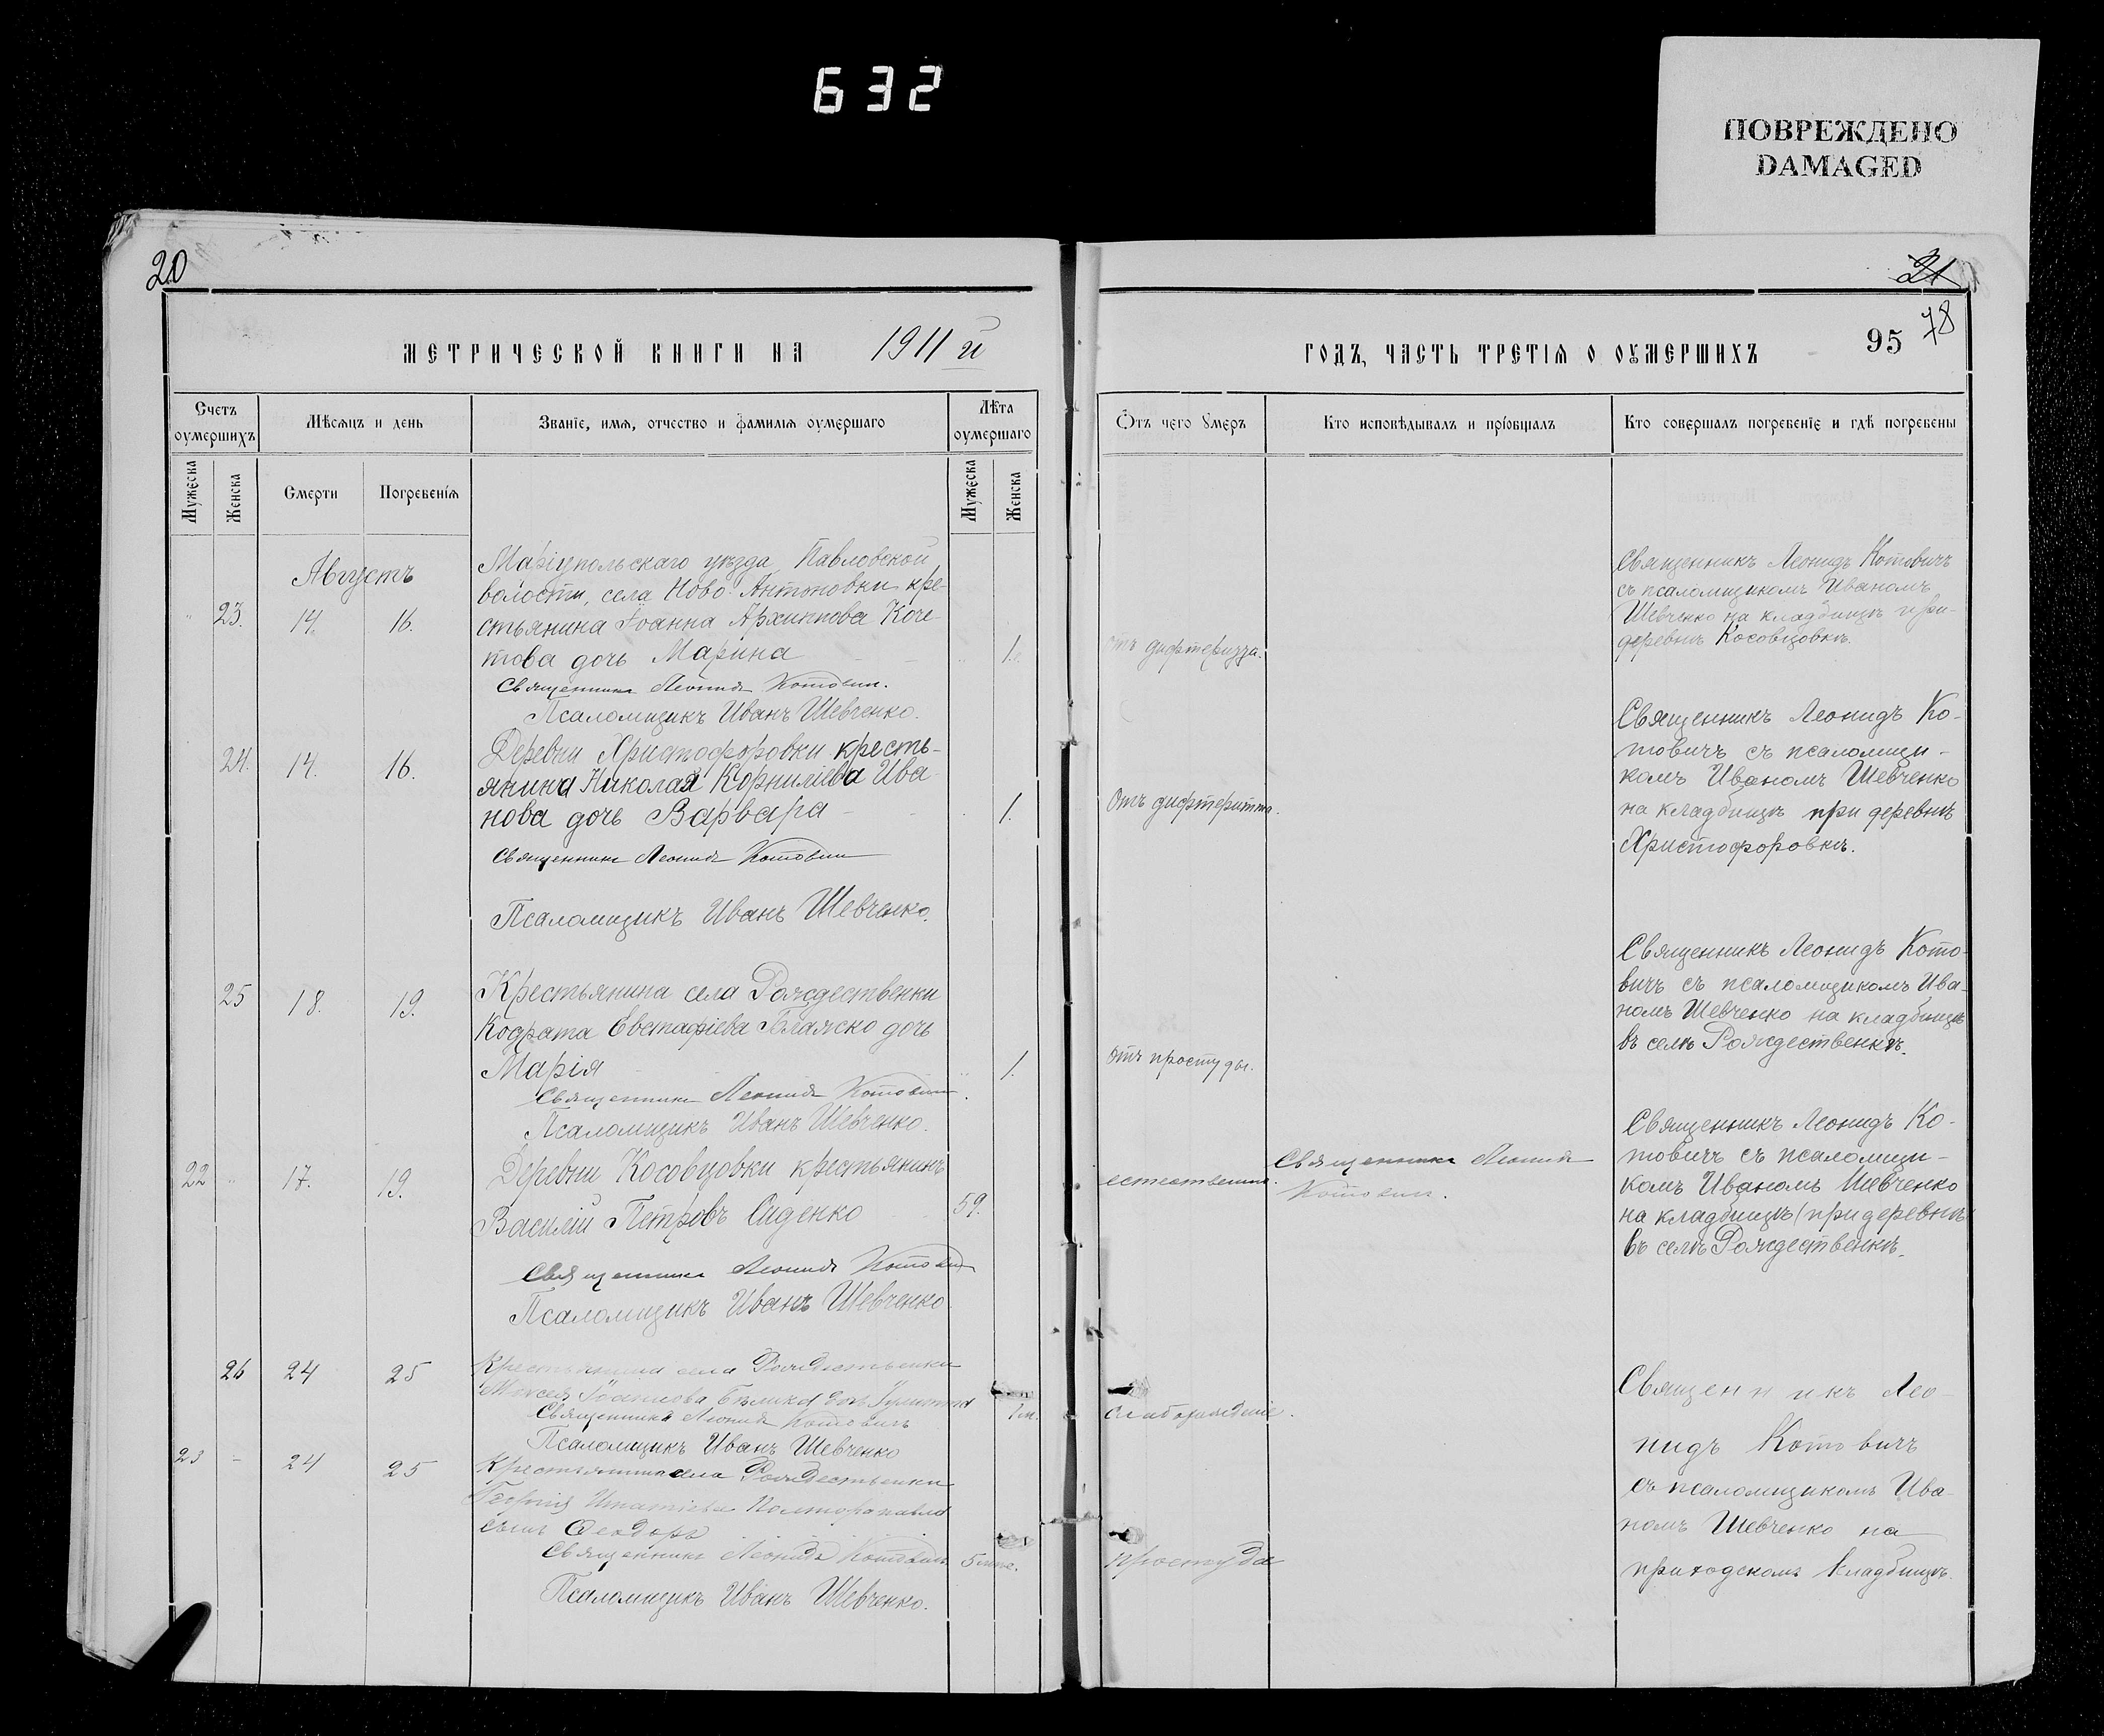 632
ПОВРЕЖДЕНО
DAMAGED
20
МЕТРИЧЕСКОЙ КНИГИ НА 1911 й
Счетъ оумершихъ
Мѣсяцъ и день
Званіе, имя, отчество и фамилія оумершаго
Лѣта оумершаго
Мужеска
Женска
Смерти
Погребенія
Мужеска
Женска
Августъ
23. 14. 16.
Маріупольскаго уѣзда, Павловской
волости, села Ново-Антоновки кре-
стьянина Іоанна Архиппова Коче
това дочь Марина 1.
Священникъ Леонидъ Котовичъ.
Псаломщикъ Иванъ Шевченко.
24. 14. 16.
Деревни Христофоровки кресть-
янина Николая Корниліева Ива
нова дочь Варвара 1.
Священникъ Леонидъ Котовичъ
Псаломщикъ Иванъ Шевченко.
25 18. 19.
Крестьянина села Рождественки
Кодрата Евстафіева дочь
Марія 1.
Священникъ Леонидъ Котовичъ.
Псаломщикъ Иванъ Шевченко.
22 " 17. 19.
Деревни Косовцовки крестьянинъ
Василій Петровъ Сиденко 59.
Священникъ Леонидъ Котовичъ
Псаломщикъ Иванъ Шевченко.
26 24 25
Крестьянина села Рождественки
Бѣлика дочь 1 м.
Священникъ Леонидъ Котовичъ
Псаломщикъ Иванъ Шевченко
23 - 24 25
Крестьянина села Рождественки
Георгія Игнатіева
сынъ Ѳеодоръ
Священникъ Леонидъ Котовичъ 5
Псаломщикъ Иванъ Шевченко.
21
78
95
ГОДЪ, ЧАСТЬ ТРЕТІЯ О ОУМЕРШИХЪ
Отъ чего умеръ
Кто исповѣдывалъ и пріобщалъ
Кто совершалъ погребеніе и гдѣ погребены
отъ
Священникъ Леонидъ Котовичъ
съ псаломщикомъ Иваномъ
Шевченко на кладбищѣ при-
деревнѣ Косовцовкѣ.
Отъ дифтеритта.
Священникъ Леонидъ Ко-
товичъ съ псаломщи-
комъ Иваномъ Шевченко
на кладбищѣ при деревнѣ
Христофоровкѣ.
отъ простуды.
Священникъ Леонидъ Кото-
вичъ съ псаломщикомъ Ива-
номъ Шевченко на кладбищѣ
въ селѣ Рождественкѣ.
естественно.
Священникъ Леонидъ
Котовичъ.
Священникъ Леонидъ Ко-
товичъ съ псаломщи-
комъ Иваномъ Шевченко
на кладбищѣ (при деревнѣ)
въ селѣ Рождественкѣ.
простуда
Священникъ Лео-
нидъ Котовичъ
съ псаломщикомъ Ива-
номъ Шевченко на
приходскомъ кладбищѣ.